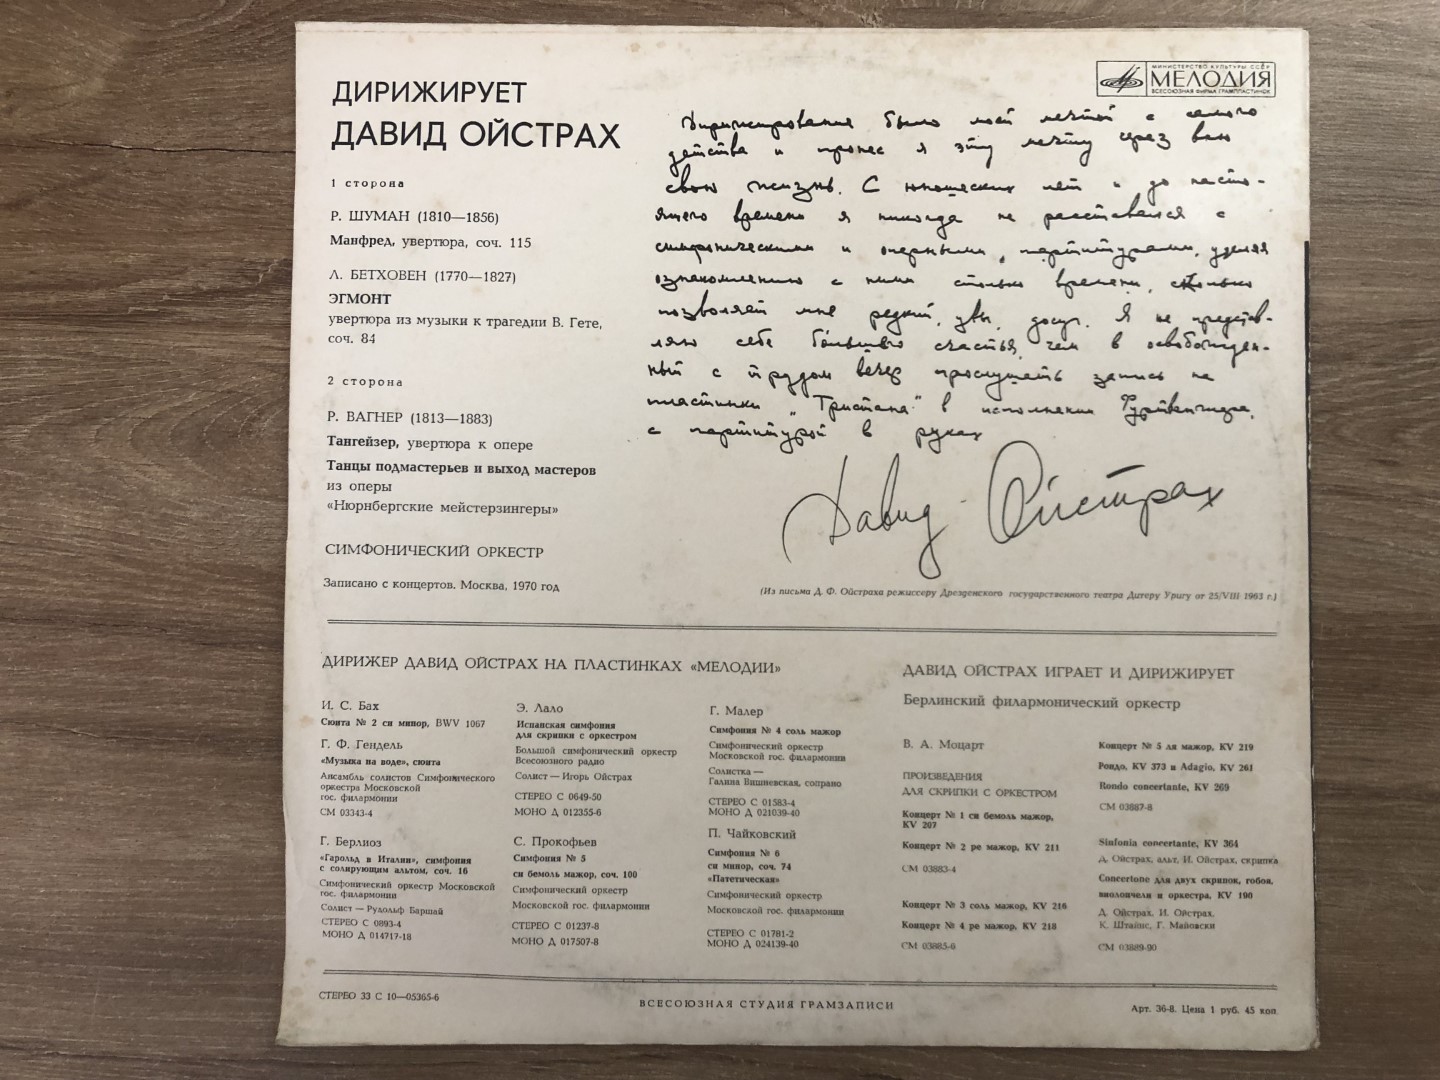 ДИРИЖИРУЕТ
ДАВИД ОЙСТРАХ
1 сторона
Р. ШУМАН (1810—1856)
Манфред, увертюра, соч. 115
Л. БЕТХОВЕН (1770—1827)
ЭГМОНТ
увертюра из музыки к трагедии В. Гете,
соч. 84
2 сторона
Р. ВАГНЕР (1813—1883)
Тангейзер, увертюра к опере
Танцы подмастерьев и выход мастеров
из оперы
«Нюрнбергские мейстерзингеры»
СИМФОНИЧЕСКИЙ ОРКЕСТР
Записано с концертов. Москва, 1970 год
МИНИСТЕРСТВО КУЛЬТУРЫ СССР
МЕЛОДИЯ
ВСЕСОЮЗНАЯ ФИРМА ГРАМПЛАСТИНОК
Дирижирование было моей мечтой с самого
детства и пронес я эту мечту через всю
свою жизнь. С юношеских лет и до насто-
ящего времени я никогда не расставался с
симфоническими и оперными партитурами, уделяя
ознакомлению с ними столько времени, сколько
позволяет мне редкий, увы, досуг. Я не представ-
ляю себе большего счастья, чем в освобожден-
ный с трудом вечер прослушать запись на
пластинки „Тристана" в исполнении Фуртвенглера,
с партитурой в руках
Давид Ойстрах
(Из письма Д. Ф. Ойстраха режиссеру Дрезденского государственного театра Дитеру Уригу от 25/VIII 1963 г.)
ДИРИЖЕР ДАВИД ОЙСТРАХ НА ПЛАСТИНКАХ «МЕЛОДИИ»
И. С. Бах
Сюита № 2 си минор, BWV 1067
Г. Ф. Гендель
«Музыка на воде», сюита
Ансамбль солистов Симфонического
оркестра Московской
гос. филармонии
СМ 03343-4
Г. Берлиоз
«Гарольд в Италии», симфония
с солирующим альтом, соч. 16
Симфонический оркестр Московской
гос. филармонии
Солист — Рудольф Баршай
СТЕРЕО С 0893-4
МОНО Д 014717-18
Э. Лало
Испанская симфония
для скрипки с оркестром
Большой симфонический оркестр
Всесоюзного радио
Солист — Игорь Ойстрах
СТЕРЕО С 0649-50
МОНО Д 012355-6
С. Прокофьев
Симфония № 5
си бемоль мажор, соч. 100
Симфонический оркестр
Московской гос. филармонии
СТЕРЕО С 01237-8
МОНО Д 017507-8
Г. Малер
Симфония № 4 соль мажор
Симфонический оркестр
Московской гос. филармонии
Солистка —
Галина Вишневская, сопрано
СТЕРЕО С 01583-4
МОНО Д 021039-40
П. Чайковский
Симфония № 6
си минор, соч. 74
«Патетическая»
Симфонический оркестр
Московской гос. филармонии
СТЕРЕО С 01781-2
МОНО Д 024139-40
ДАВИД ОЙСТРАХ ИГРАЕТ И ДИРИЖИРУЕТ
Берлинский филармонический оркестр
В. А. Моцарт
ПРОИЗВЕДЕНИЯ
ДЛЯ СКРИПКИ С ОРКЕСТРОМ
Концерт № 1 си бемоль мажор,
KV 207
Концерт № 2 ре мажор, KV 211
СМ 03883-4
Концерт № 3 соль мажор, KV 216
Концерт № 4 ре мажор, KV 218
СМ 03885-6
Концерт № 5 ля мажор, KV 219
Рондо, KV 373 и Adagio, KV 261
Rondo concertante, KV 269
СМ 03887-8
Sinfonia concertante, KV 364
Д. Ойстрах, альт, И. Ойстрах, скрипка
Concertone для двух скрипок, гобоя,
виолончели и оркестра, KV 190
Д. Ойстрах, И. Ойстрах,
К. Штайнс, Г. Майовски
СМ 03889-90
СТЕРЕО 33 С 10—05365-6
ВСЕСОЮЗНАЯ СТУДИЯ ГРАМЗАПИСИ
Арт. 36-8. Цена 1 руб. 45 коп.